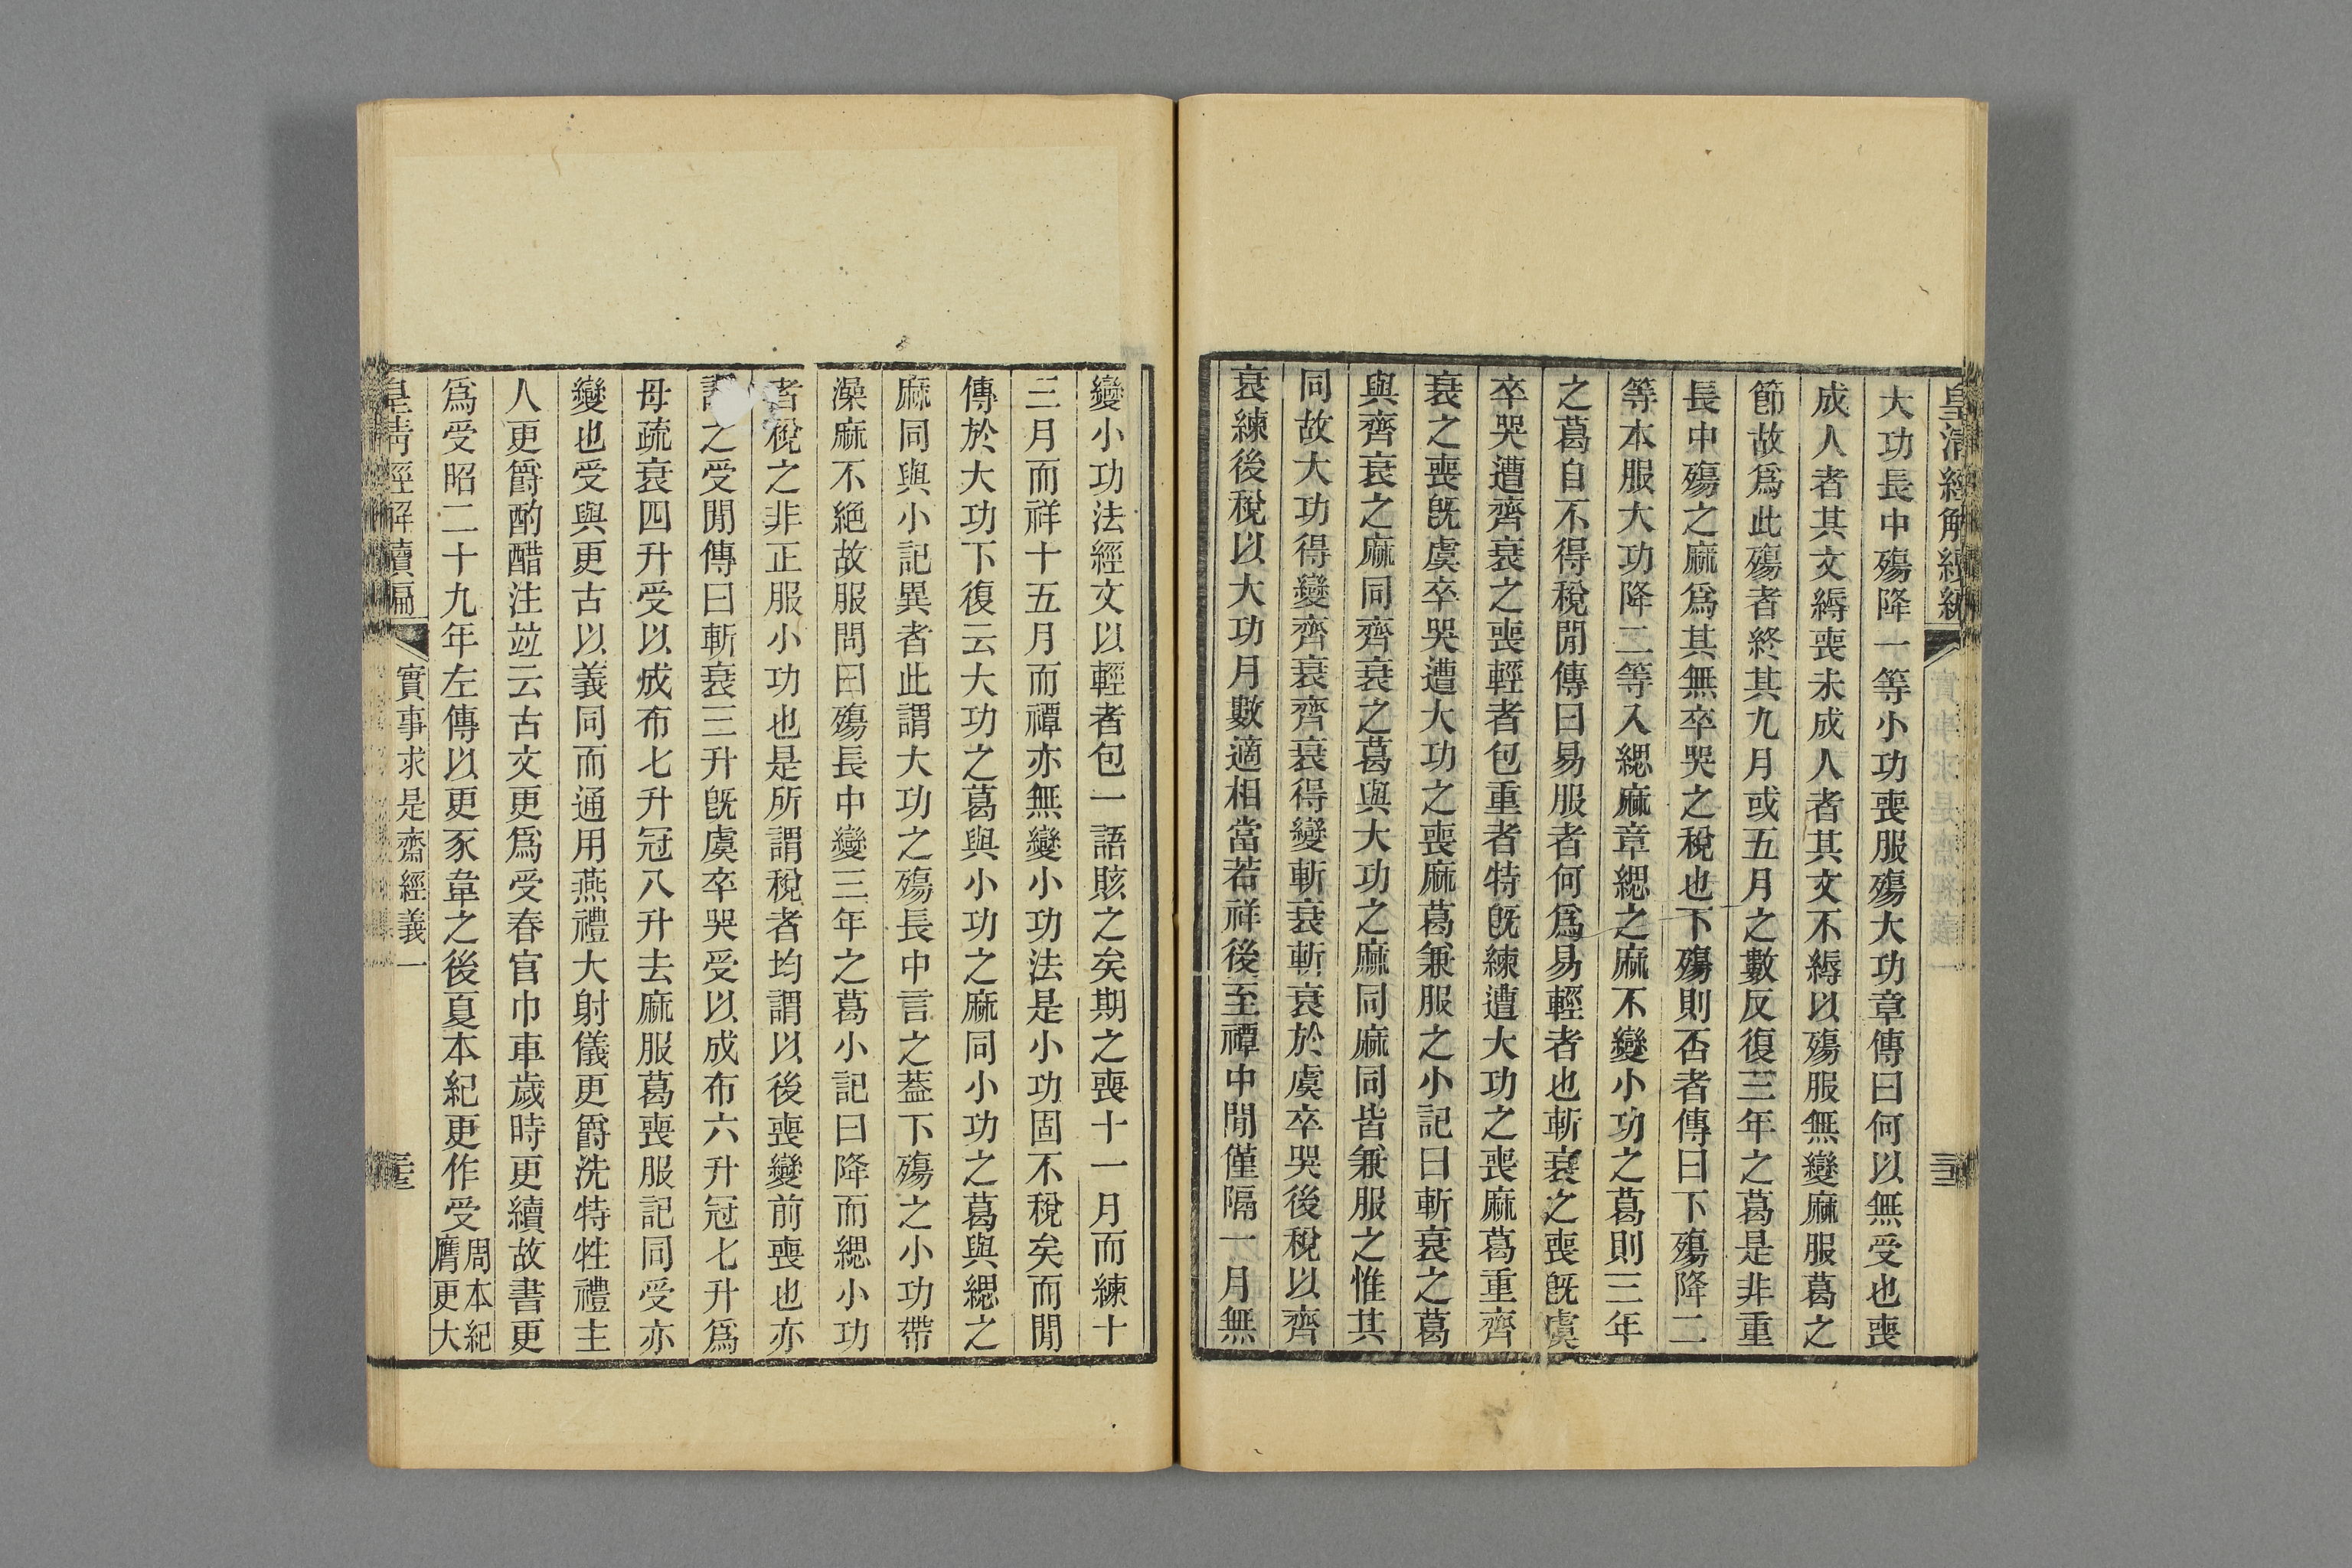 皇清經解續編
大功長中殤降一等小功喪服殤大功章傳曰何以無受也喪
成人者其文縟喪未成人者其文不縟以殤服無變麻服葛之
節故爲此殤者終其九月或五月之數反復三年之葛是非重
長中殤之麻爲其無卒哭之稅也下殤則否者傳曰下殤降二
等本服大功降二等入緦麻章緦之麻不變小功之葛則三年
之葛自不得稅閒傳曰易服者何爲易輕者也斬衰之喪旣虞
卒哭遭齊衰之喪輕者包重者特旣練遭大功之喪麻葛重齊
衰之喪旣虞卒哭遭大功之喪麻葛兼服之小記曰斬衰之葛
與齊衰之麻同齊衰之葛與大功之麻同麻同皆兼服之惟其
同故大功得變齊衰齊衰得變斬衰斬衰於虞卒哭後稅以齊
衰練後稅以大功月數適相當若祥後至禫中閒僅隔一月無
變小功法經文以輕者包一語賅之矣期之喪十一月而練十
三月而祥十五月而禫亦無變小功法是小功固不稅矣而閒
傳於大功下復云大功之葛與小功之麻同小功之葛與緦之
麻同與小記異者此謂大功之殤長中言之葢下殤之小功帶
澡麻不絕故服問曰殤長中變三年之葛小記曰降而緦小功
者稅之非正服小功也是所謂稅者均謂以後喪變前喪也亦
之受閒傳曰斬衰三升旣虞卒哭受以成布六升冠七升爲
母疏衰四升受以成布七升冠八升去麻服葛喪服記同受亦
變也受與更古以義同而通用燕禮大射儀更爵洗特牲禮主
人更爵酌醋注竝云古文更爲受春官巾車歲時更續故書更
爲受昭二十九年左傳以更豕韋之後夏本紀更作受周本紀
膺更大
皇清經解續編
實事求是齋經義一